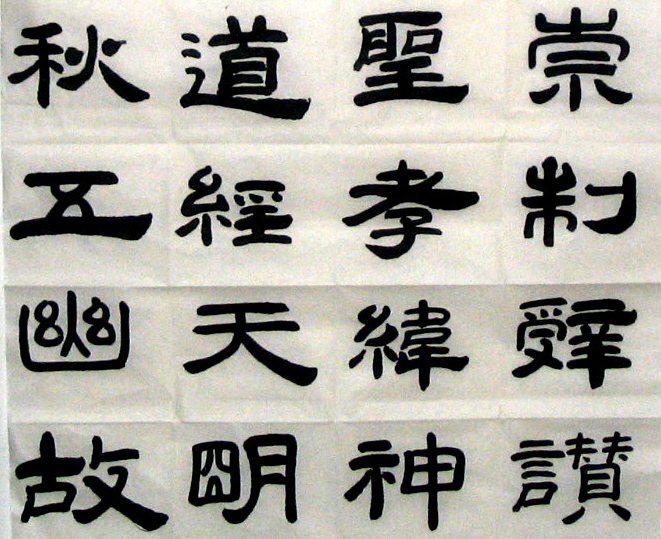 崇制辤讃
聖孝緯神
道經天明
秋五幽故